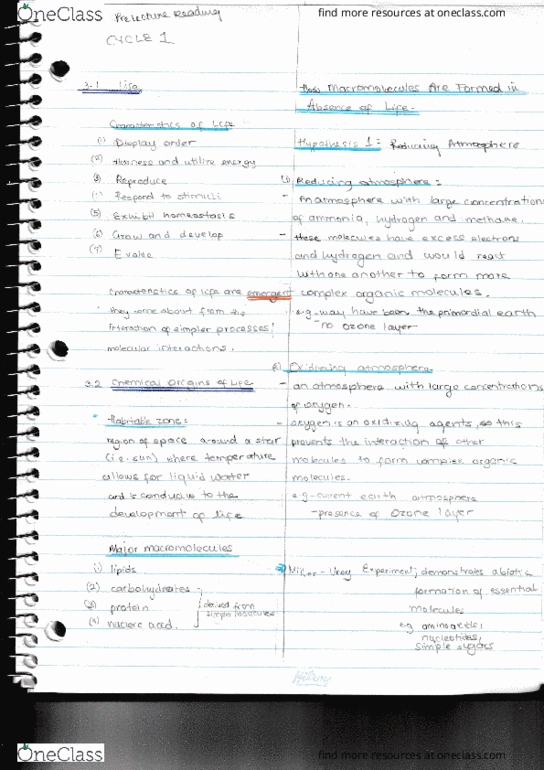 OneClass
find more resources at oneclass.com
Prelecture Reading
CYCLE 1
3.1 Life
Characteristics of Life
(1) Display order
(2) Harness and utilize energy
(3) Reproduce
(4) Respond to stimuli
(5) Exhibit homeostasis
(6) Grow and develop
(7) Evolve
Characteristics of life are emergent
they come about from the
interaction of simpler processes/
molecular interactions.
3.2 Chemical Origins of Life
Habitable zone:
region of space around a star
(i.e. sun) where temperature
allows for liquid water
and is conducive to the
development of life
Major macromolecules
1) lipids
(2) carbohydrates
(3) protein
(4) nucleic acid.
derived from
simple molecules
How Macromolecules Are Formed in
Absence of Life.
Hypothesis 1: Reducing Atmosphere
(1) Reducing atmosphere:
- An atmosphere with large concentrations
of ammonia, hydrogen and methane.
- these molecules have excess electrons
and hydrogen and would react
with one another to form more
complex organic molecules.
e.g. way have been the primordial earth
- no ozone layer
2) Oxidizing atmosphere
- an atmosphere with large concentrations
of oxygen.
- oxygen is an oxidizing agents, so this
prevents the interaction of other
molecules to form complex organic
molecules.
e.g. current earth atmosphere
- presence of ozone layer
Miller-Urey Experiment; demonstrates abiotic
formation of essential
molecules
e.g. aminoacids,
nucleotides,
simple sugars
Hilroy
OneClass
find more resources at oneclass.com